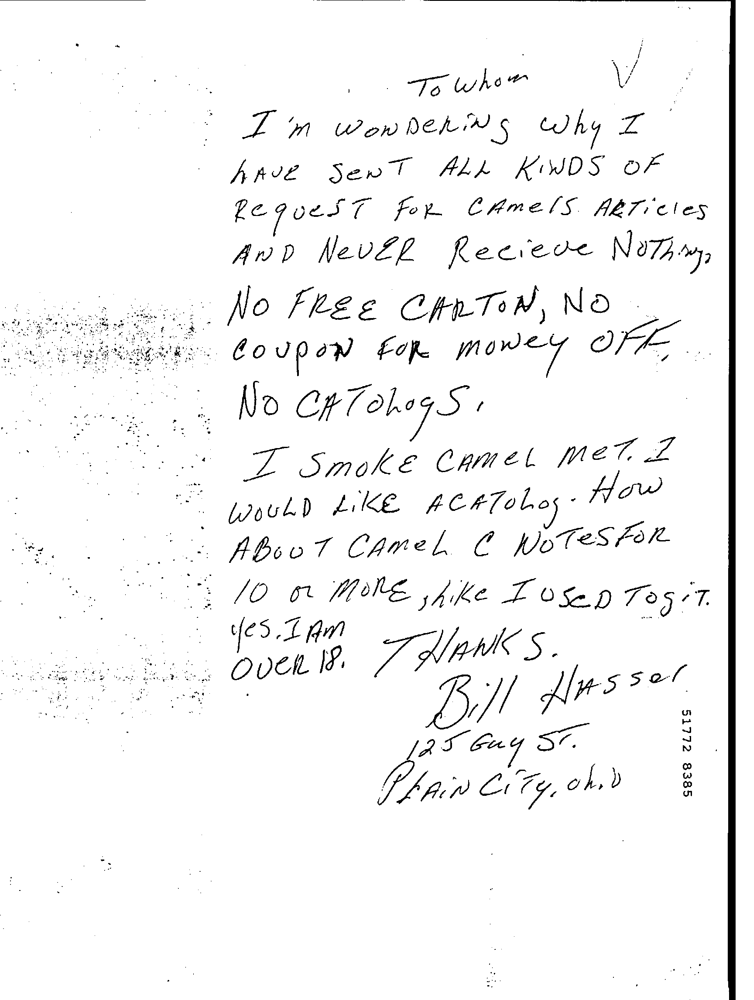 To Whom
I'm WONDERiNg Why I
HAVE SENT ALL KiNDS OF
REqUEST FOR CAmels ARTicles
AND NEVER Recieve NoThing,
NO FREE CARTON, NO
COUPON FOR MONEY OFF,
NO CATOLOgS.
I SMOKE CAMEL MeT. I
WOULD LiKE A CATOLOg. How
ABOUT CAMEL C NOTES FOR
10 or MORE, Like I USED To giT.
Yes. I Am
OVER 18. THANKS.
Bill Hasser
125 Guy ST.
PLAiN CiTy, Ohio
51772 8385